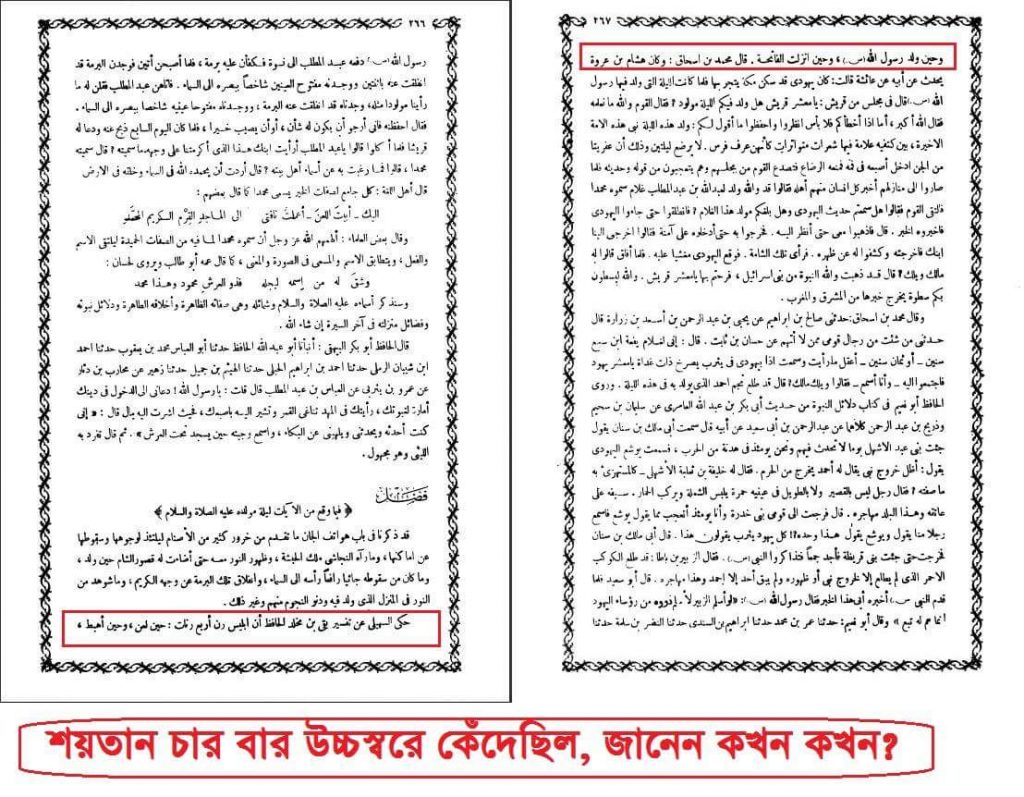 ٢٦٦
رسول الله (ص) دفعه عبد المطلب الى نسوة فكفأن عليه برمة، فلما أصبحن أتين فوجدن البرمة قد
انفلقت عنه باثنتين ووجدنه مفتوح العينين شاخصاً ببصره الى السماء. فأتاهن عبد المطلب فقلن له ما
رأينا مولودا مثله، وجدناه قد انفلقت عنه البرمة، ووجدناه مفتوحا عينيه شاخصا ببصره الى السماء.
فقال احفظنه فانى أرجو أن يكون له شأن، أو أن يصيب خيرا، فلما كان اليوم السابع ذبح عنه ودعا له
قريشا فلما أكلوا قالوا يا عبد المطلب أرأيت ابنك هذا الذى أكرمتنا على وجهه ما سميته؟ قال سميته
محمدا، قالوا فما رغبت به عن أسماء أهل بيته؟ قال أردت أن يحمده الله فى السماء وخلقه فى الارض
قال أهل اللغة: كل جامع لصفات الخير يسمى محمدا كما قال بعضهم:
اليك ـ أبيت اللعن ـ أعملت ناقتى الى الماجد القرم الكريم المحمد
وقال بعض العلماء: ألهمهم الله عز وجل أن سموه محمدا لما فيه من الصفات الحميدة ليلتقى الاسم
والفعل، ويتطابق الاسم والمسمى فى الصورة والمعنى، كما قال عمه أبو طالب ويروى لحسان:
وشق له من إسمه ليجله فذو العرش محمود وهذا محمد
وسنذكر أسماءه عليه الصلاة والسلام وشمائله وهى صفاته الظاهرة وأخلاقه الطاهرة ودلائل نبوته
وفضائل منزلته فى آخر السيرة إن شاء الله.
قال الحافظ أبو بكر البيهقى: أنبأنا أبو عبد الله الحافظ حدثنا أبو العباس محمد بن يعقوب حدثنا احمد
ابن شيبان الرملى حدثنا احمد بن ابراهيم الحبلى حدثنا الهيثم بن جميل حدثنا زهير عن محارب بن دثار
عن عمرو بن يثربى عن العباس بن عبد المطلب قال قلت: يا رسول الله! دعانى الى الدخول فى دينك
أمارة لنبوتك، رأيتك فى المهد تناغى القمر وتشير اليه باصبعك، فحيث اشرت اليه مال قال: « إنى
كنت أحدثه ويحدثنى ويلهينى عن البكاء، واسمع وجبته حين يسجد تحت العرش ». ثم قال تفرد به
الليثى وهو مجهول.
فصل
﴿ فيما وقع من الآيات ليلة مولده عليه الصلاة والسلام ﴾
قد ذكرنا فى باب هواتف الجان ما تقدم من خرور كثير من الأصنام ليلتئذ لوجوهها وسقوطها
عن اماكنها، وما رآه النجاشى ملك الحبشة، وظهور النور معه حتى أضاءت له قصور الشام حين ولد،
وما كان من سقوطه جاثيا رافعاً رأسه الى السماء، وانفلاق تلك البرمة عن وجهه الكريم، وما شوهد من
النور فى المنزل الذى ولد فيه ودنو النجوم منهم وغير ذلك.
حكى السهيلى عن تفسير بقى بن مخلد الحافظ أن ابليس رن أربع رنات: حين لعن، وحين أهبط،
٢٦٧
وحين ولد رسول الله (ص)، وحين انزلت الفاتحة. قال محمد بن اسحاق: وكان هشام بن عروة
يحدث عن أبيه عن عائشة قالت: كان يهودى قد سكن مكة يتجر بها فلما كانت الليلة التى ولد فيها رسول
الله (ص) قال فى مجلس من قريش: يا معشر قريش هل ولد فيكم الليلة مولود؟ فقال القوم والله ما نعلمه
فقال الله أكبر، أما اذا أخطأكم فلا بأس انظروا واحفظوا ما أقول لكم: ولد هذه الليلة نبى هذه الامة
الاخيرة، بين كتفيه علامة فيها شعرات متواترات كأنهن عرف فرس. لا يرضع ليلتين وذلك أن عفريتا
من الجن ادخل أصبعه فى فمه فمنعه الرضاع فتصدع القوم من مجلسهم وهم يتعجبون من قوله وحديثه فلما
صاروا الى منازلهم أخبر كل انسان منهم أهله فقالوا قد والله ولد لعبد الله بن عبد المطلب غلام سموه محمدا
فالتقى القوم فقالوا هل سمعتم حديث اليهودى وهل بلغكم مولد هذا الغلام؟ فانطلقوا حتى جاءوا اليهودى
فاخبروه الخبر. قال فاذهبوا معى حتى أنظر اليه. فخرجوا به حتى أدخلوه على آمنة فقالوا اخرجى الينا
ابنك فاخرجته وكشفوا له عن ظهره. فرأى تلك الشامة. فوقع اليهودى مغشيا عليه. فلما أفاق قالوا له
مالك ويلك؟ قال قد ذهبت والله النبوة من بنى اسرائيل، فرحتم بها يا معشر قريش. والله ليسطون
بكم سطوة يخرج خبرها من المشرق والمغرب.
وقال محمد بن اسحاق: حدثنى صالح بن ابراهيم عن يحيى بن عبد الرحمن بن أسعد بن زرارة قال
حدثنى من شئت من رجال قومى ممن لا أتهم عن حسان بن ثابت. قال: إنى لغلام يفعة ابن سبع
سنين ـ أو ثمان سنين ـ أعقل ما رأيت وسمعت اذا بيهودى فى يثرب يصرخ ذات غداة يا معشر يهود
فاجتمعوا اليه ـ وأنا أسمع ـ فقالوا ويلك مالك؟ قال قد طلع نجم احمد الذى يولد به فى هذه الليلة. وروى
الحافظ أبو نعيم فى كتاب دلائل النبوة من حديث أبى بكر بن عبد الله العامرى عن سليمان بن سحيم
وذريح بن عبد الرحمن كلاهما عن عبد الرحمن بن أبى سعيد عن أبيه قال سمعت أبى مالك بن سنان يقول
جئت بنى عبد الاشهل يوما لأتحدث فيهم ونحن يومئذ فى هدنة من الحرب، فسمعت يوشع اليهودى
يقول: أظل خروج نبى يقال له أحمد يخرج من الحرم. فقال له خليفة بن ثعلبة الأشهلى ـ كالمستهزئ به
ما صفته؟ فقال رجل ليس بالقصير ولا بالطويل فى عينيه حمرة يلبس الشملة ويركب الحمار. سيفه على
عاتقه وهذا البلد مهاجره. قال فرجعت الى قومى بنى خدرة وأنا يومئذ أتعجب مما يقول يوشع فاسمع
رجلا منا يقول ويوشع يقول هذا وحده؟! كل يهود يثرب يقولون هذا. قال أبى مالك بن سنان
فخرجت حتى جئت بنى قريظة فأجد جمعاً فتذاكروا النبى (ص). فقال الزبير بن باطا: قد طلع الكوكب
الاحمر الذى لم يطلع إلا لخروج نبى أو ظهوره ولم يبق أحد إلا احمد وهذا مهاجره. قال أبو سعيد فلما
قدم النبى (ص) أخبره أبى هذا الخبر فقال رسول الله (ص): « لو أسلم الزبير لأسلم ذووه من رؤساء اليهود
انما هم له تبع » وقال أبو نعيم: حدثنا عمر بن محمد حدثنا ابراهيم بن السندى حدثنا النضر بن سلمة حدثنا
শয়তান চার বার উচ্চস্বরে কেঁদেছিল, জানেন কখন কখন?